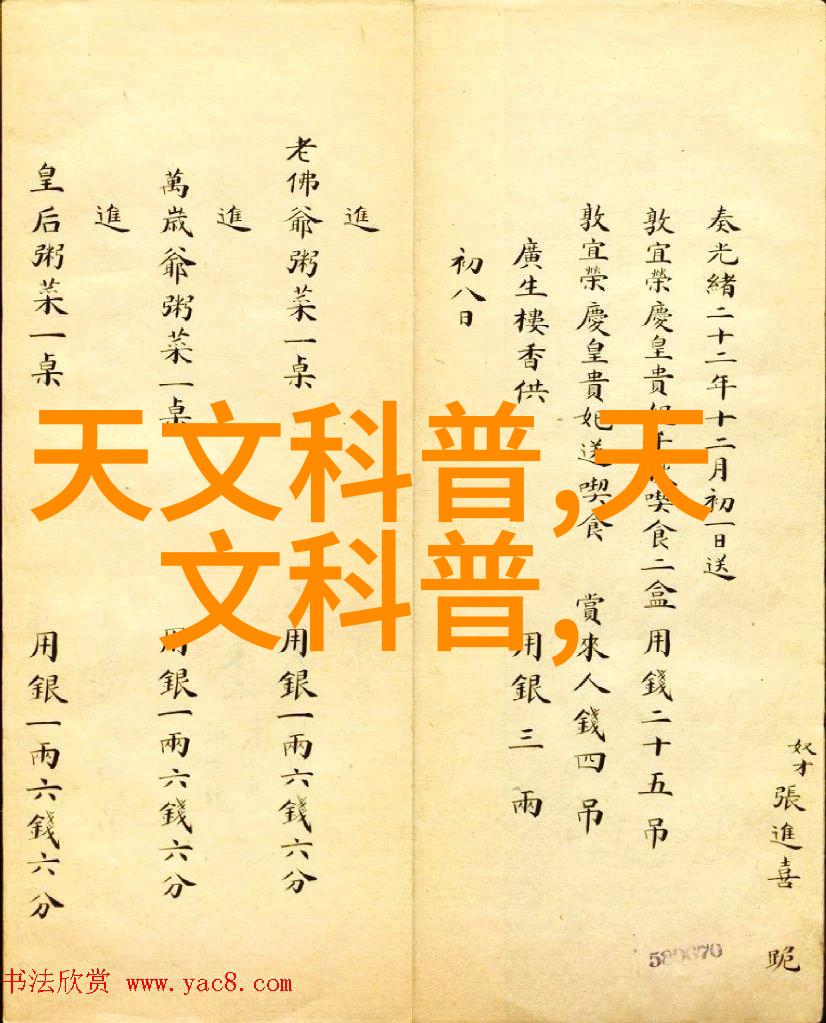 奴才張進喜 跪
奏光緒二十二年十二月初一日送
敦宜榮慶皇貴妃千喫食二盒用錢二十五吊
敦宜榮慶皇貴妃送喫食 賞來人錢四吊
廣生樓香供 用銀三兩
初八日
進
老佛爺粥菜一桌 用銀一兩六錢六分
進
萬歲爺粥菜一桌 用銀一兩六錢六分
進
皇后粥菜一桌 用銀一兩六錢六分
天文科普,天
文科普,
书法欣赏 www.yac8.com